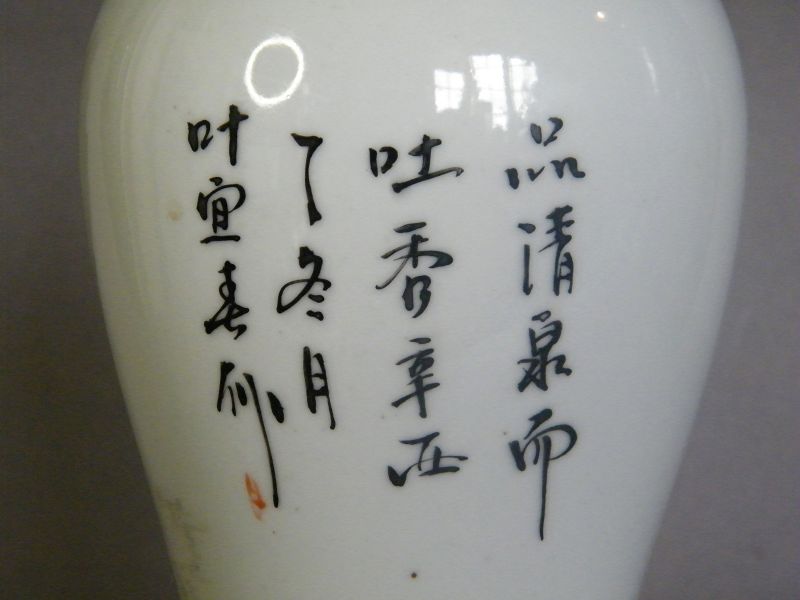 品清泉而
吐香辛酉
冬月
叶宜春